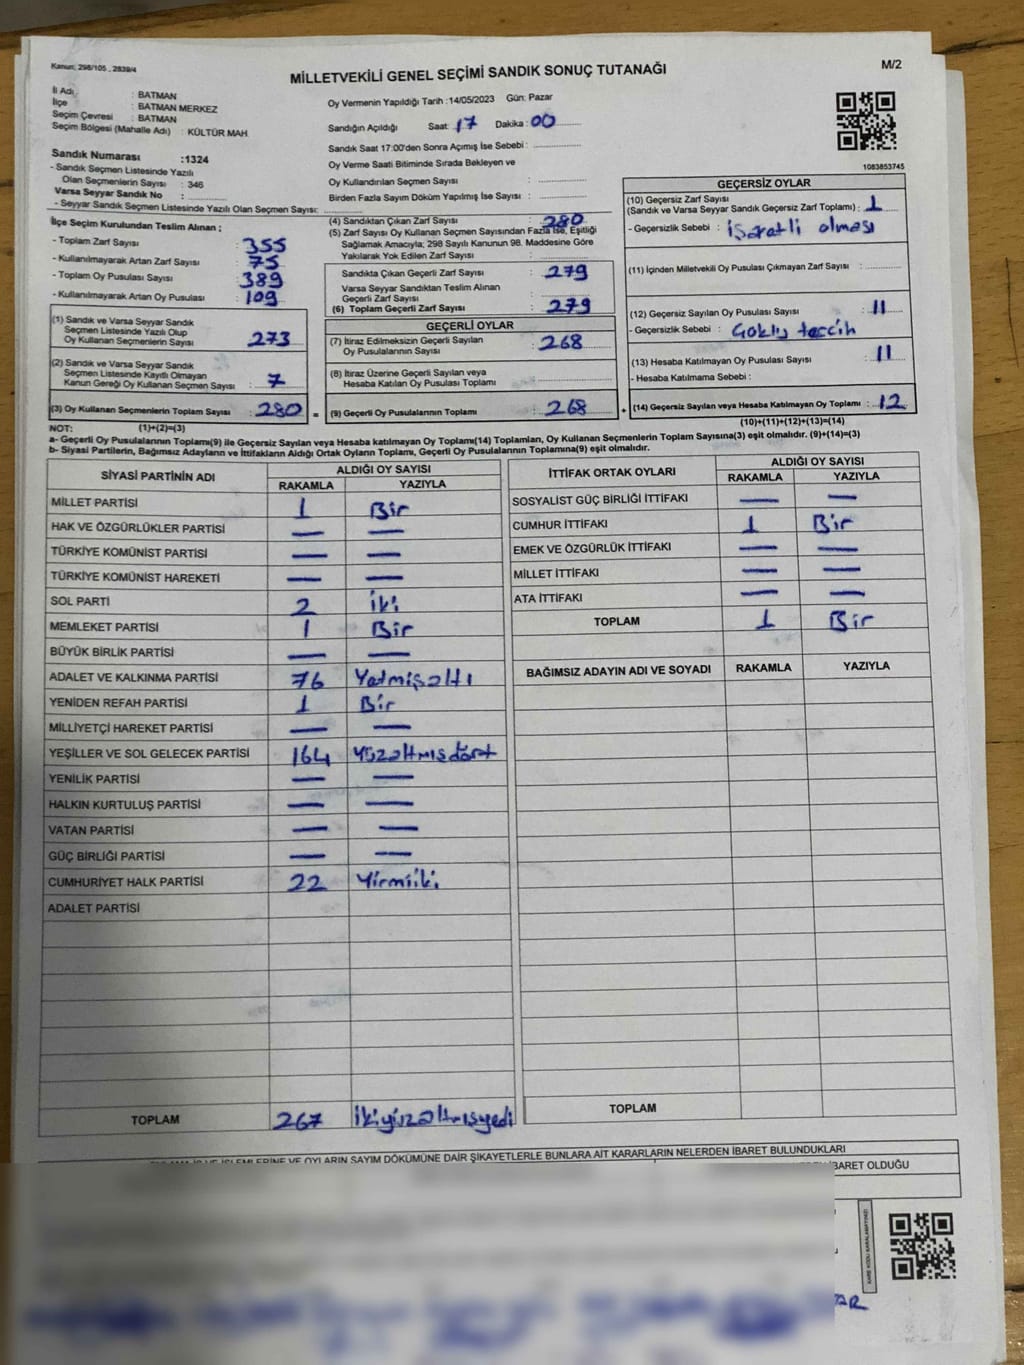 Kanun: 298/105 , 2839/4
MİLLETVEKİLİ GENEL SEÇİMİ SANDIK SONUÇ TUTANAĞI
M/2
İl Adı : BATMAN
İlçe : BATMAN MERKEZ
Seçim Çevresi : BATMAN
Seçim Bölgesi (Mahalle Adı) : KÜLTÜR MAH.
Sandık Numarası :1324
- Sandık Seçmen Listesinde Yazılı
Olan Seçmenlerin Sayısı : 346
Varsa Seyyar Sandık No :
- Seyyar Sandık Seçmen Listesinde Yazılı Olan Seçmen Sayısı:
Oy Vermenin Yapıldığı Tarih :14/05/2023 Gün: Pazar
Sandığın Açıldığı Saat: 17 Dakika : 00
Sandık Saat 17:00'den Sonra Açılmış İse Sebebi :
Oy Verme Saati Bitiminde Sırada Bekleyen ve
Oy Kullandırılan Seçmen Sayısı :
Birden Fazla Sayım Döküm Yapılmış İse Sayısı :
1083853745
İlçe Seçim Kurulundan Teslim Alınan ;
- Toplam Zarf Sayısı : 355
- Kullanılmayarak Artan Zarf Sayısı : 75
- Toplam Oy Pusulası Sayısı : 389
- Kullanılmayarak Artan Oy Pusulası : 109
(1) Sandık ve Varsa Seyyar Sandık
Seçmen Listesinde Yazılı Olup
Oy Kullanan Seçmenlerin Sayısı : 273
(2) Sandık ve Varsa Seyyar Sandık
Seçmen Listesinde Kayıtlı Olmayan
Kanun Gereği Oy Kullanan Seçmen Sayısı : 7
(3) Oy Kullanan Seçmenlerin Toplam Sayısı : 280 =
(4) Sandıktan Çıkan Zarf Sayısı : 280
(5) Zarf Sayısı Oy Kullanan Seçmen Sayısından Fazla İse, Eşitliği
Sağlamak Amacıyla; 298 Sayılı Kanunun 98. Maddesine Göre
Yakılarak Yok Edilen Zarf Sayısı :
Sandıkta Çıkan Geçerli Zarf Sayısı : 279
Varsa Seyyar Sandıktan Teslim Alınan
Geçerli Zarf Sayısı :
(6) Toplam Geçerli Zarf Sayısı : 279
GEÇERLİ OYLAR
(7) İtiraz Edilmeksizin Geçerli Sayılan
Oy Pusulalarının Sayısı : 268
(8) İtiraz Üzerine Geçerli Sayılan veya
Hesaba Katılan Oy Pusulası Toplamı :
(9) Geçerli Oy Pusulalarının Toplamı : 268 +
GEÇERSİZ OYLAR
(10) Geçersiz Zarf Sayısı
(Sandık ve Varsa Seyyar Sandık Geçersiz Zarf Toplamı) : 1
- Geçersizlik Sebebi : işaretli olması
(11) İçinden Milletvekili Oy Pusulası Çıkmayan Zarf Sayısı :
(12) Geçersiz Sayılan Oy Pusulası Sayısı : 11
- Geçersizlik Sebebi : Çoklu tercih
(13) Hesaba Katılmayan Oy Pusulası Sayısı : 11
- Hesaba Katılmama Sebebi :
(14) Geçersiz Sayılan veya Hesaba Katılmayan Oy Toplamı : 12
(10)+(11)+(12)+(13)=(14)
NOT: (1)+(2)=(3)
a- Geçerli Oy Pusulalarının Toplamı(9) ile Geçersiz Sayılan veya Hesaba katılmayan Oy Toplamı(14) Toplamları, Oy Kullanan Seçmenlerin Toplam Sayısına(3) eşit olmalıdır. (9)+(14)=(3)
b- Siyasi Partilerin, Bağımsız Adayların ve İttifakların Aldığı Ortak Oyların Toplamı, Geçerli Oy Pusulalarının Toplamına(9) eşit olmalıdır.
SİYASİ PARTİNİN ADI ALDIĞI OY SAYISI
RAKAMLA YAZIYLA
MİLLET PARTİSİ 1 Bir
HAK VE ÖZGÜRLÜKLER PARTİSİ — —
TÜRKİYE KOMÜNİST PARTİSİ — —
TÜRKİYE KOMÜNİST HAREKETİ — —
SOL PARTİ 2 iki
MEMLEKET PARTİSİ 1 Bir
BÜYÜK BİRLİK PARTİSİ — —
ADALET VE KALKINMA PARTİSİ 76 Yetmişaltı
YENİDEN REFAH PARTİSİ 1 Bir
MİLLİYETÇİ HAREKET PARTİSİ — —
YEŞİLLER VE SOL GELECEK PARTİSİ 164 Yüzaltmışdört
YENİLİK PARTİSİ — —
HALKIN KURTULUŞ PARTİSİ — —
VATAN PARTİSİ — —
GÜÇ BİRLİĞİ PARTİSİ — —
CUMHURİYET HALK PARTİSİ 22 Yirmiiki
ADALET PARTİSİ
TOPLAM 267 İkiyüzaltmışyedi
İTTİFAK ORTAK OYLARI ALDIĞI OY SAYISI
RAKAMLA YAZIYLA
SOSYALİST GÜÇ BİRLİĞİ İTTİFAKI — —
CUMHUR İTTİFAKI 1 Bir
EMEK VE ÖZGÜRLÜK İTTİFAKI — —
MİLLET İTTİFAKI — —
ATA İTTİFAKI — —
TOPLAM 1 Bir
BAĞIMSIZ ADAYIN ADI VE SOYADI RAKAMLA YAZIYLA
TOPLAM
İŞLEMLERİNE VE OYLARIN SAYIM DÖKÜMÜNE DAİR ŞİKAYETLERLE BUNLARA AİT KARARLARIN NELERDEN İBARET BULUNDUKLARI
İBARET OLDUĞU